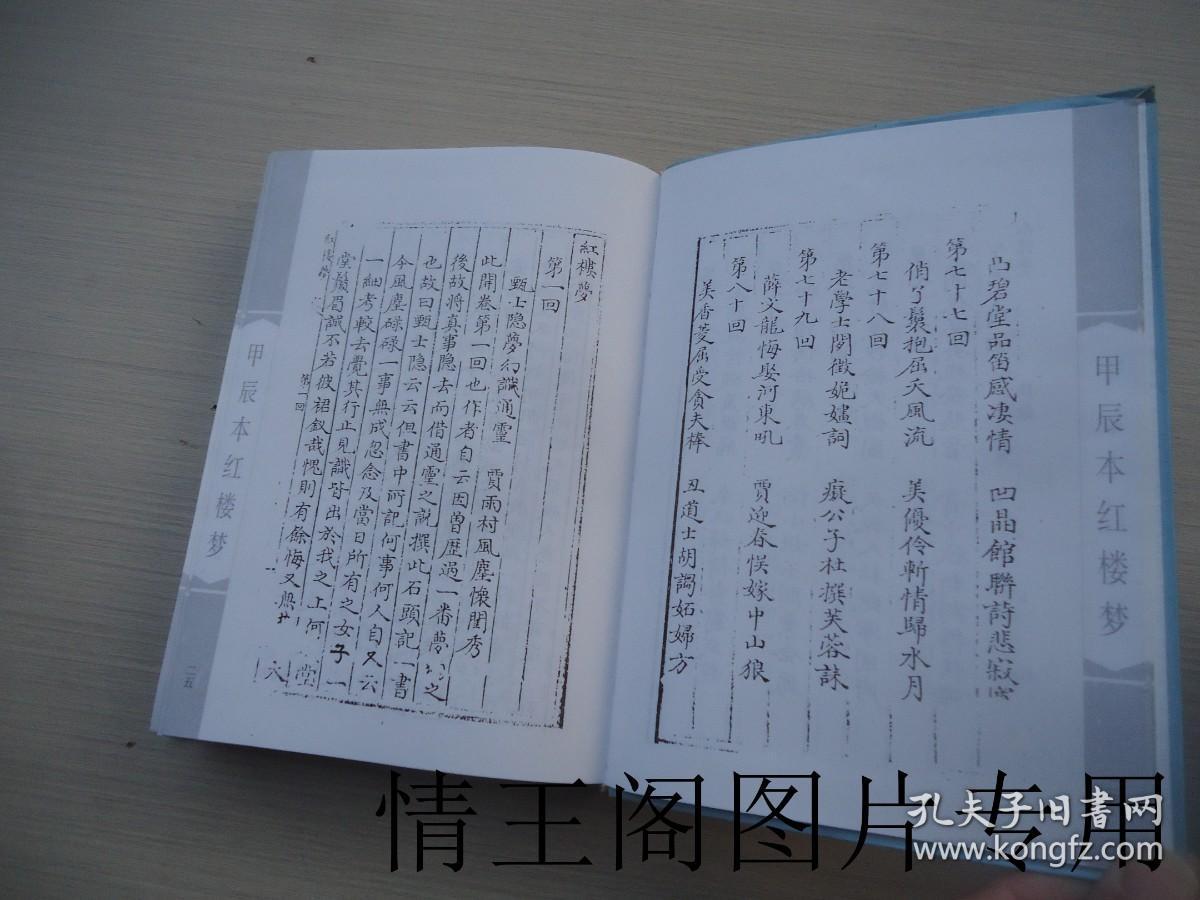 甲辰本红楼梦
凸碧堂品笛感凄情 凹晶館聯詩悲寂寞
第七十七回
俏丫鬟抱屈夭風流 美優伶斬情歸水月
第七十八回
老學士閑徵姽嫿詞 癡公子杜撰芙蓉誄
第七十九回
薛文龍悔娶河東吼 賈迎春悞嫁中山狼
第八十回
美香菱屈受貪夫棒 丑道士胡謅妬婦方
紅樓夢
第一回
甄士隐夢幻識通靈 賈雨村風塵懷閨秀
此開卷第一回也作者自云因曽歷過一番夢幻之
後故将真事隐去而借通靈之說撰此石頭記一書
也故曰甄士隐云云但書中所記何事何人自又云
今風塵碌碌一事無成忽念及當日所有之女子一
一細考較去覺其行止見識皆出於我之上何
堂鬚眉誠不若彼裙釵哉愧則有餘悔又無
堂
紅樓夢
第一回
六
甲辰本红楼梦
二五
情王阁图片专用
孔夫子旧书网
www.kongfz.com